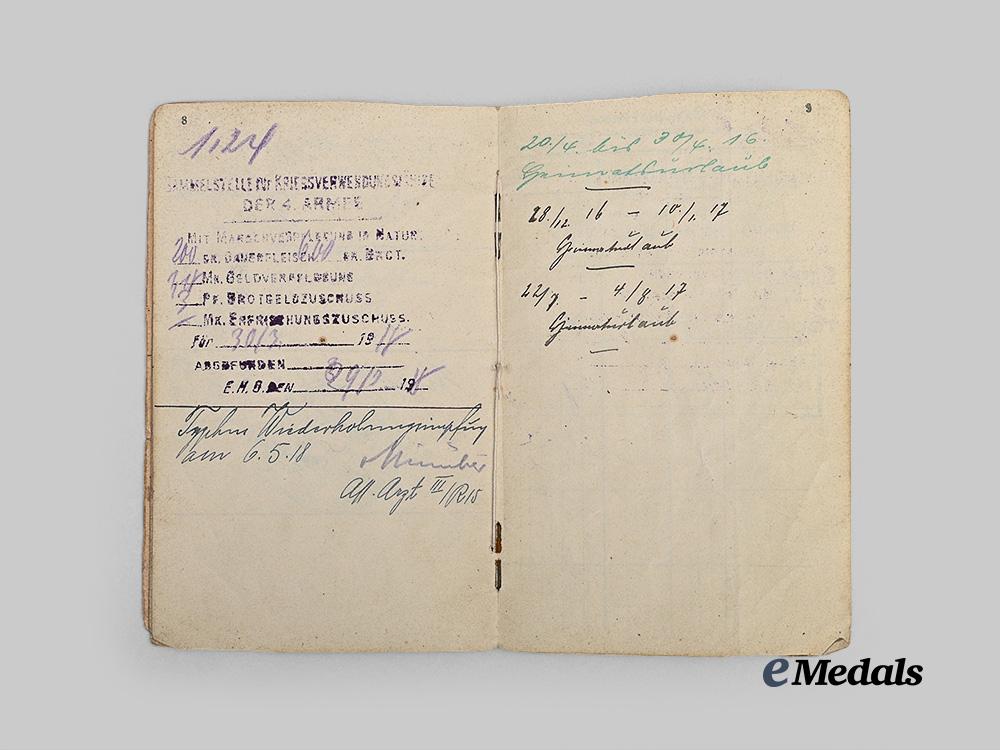 8
1,24
SAMMELSTELLE FÜR KRIEGSVERWENDUNGSFÄHIGE
DER 4. ARMEE
MIT MARSCHVERPFLEGUNG IN NATUR.
200 GR. DAUERFLEISCH 600 GR. BROT.
MK. GELDVERPFLEGUNG
PF. BROTGELDZUSCHUSS
MK. ERFRISCHUNGSZUSCHUSS.
FÜR 30/3. 1918
ABGEFUNDEN
E.H.O. DEN 29/3 1918
Typhus Wiederholungsimpfung
am 6.5.18
Ass. Arzt III/R15
9
20/4. bis 30/4. 16.
Heimatsurlaub
28./12. 16 – 10./1. 17
Heimaturlaub
22/7. – 4/8. 17
Heimaturlaub
eMedals